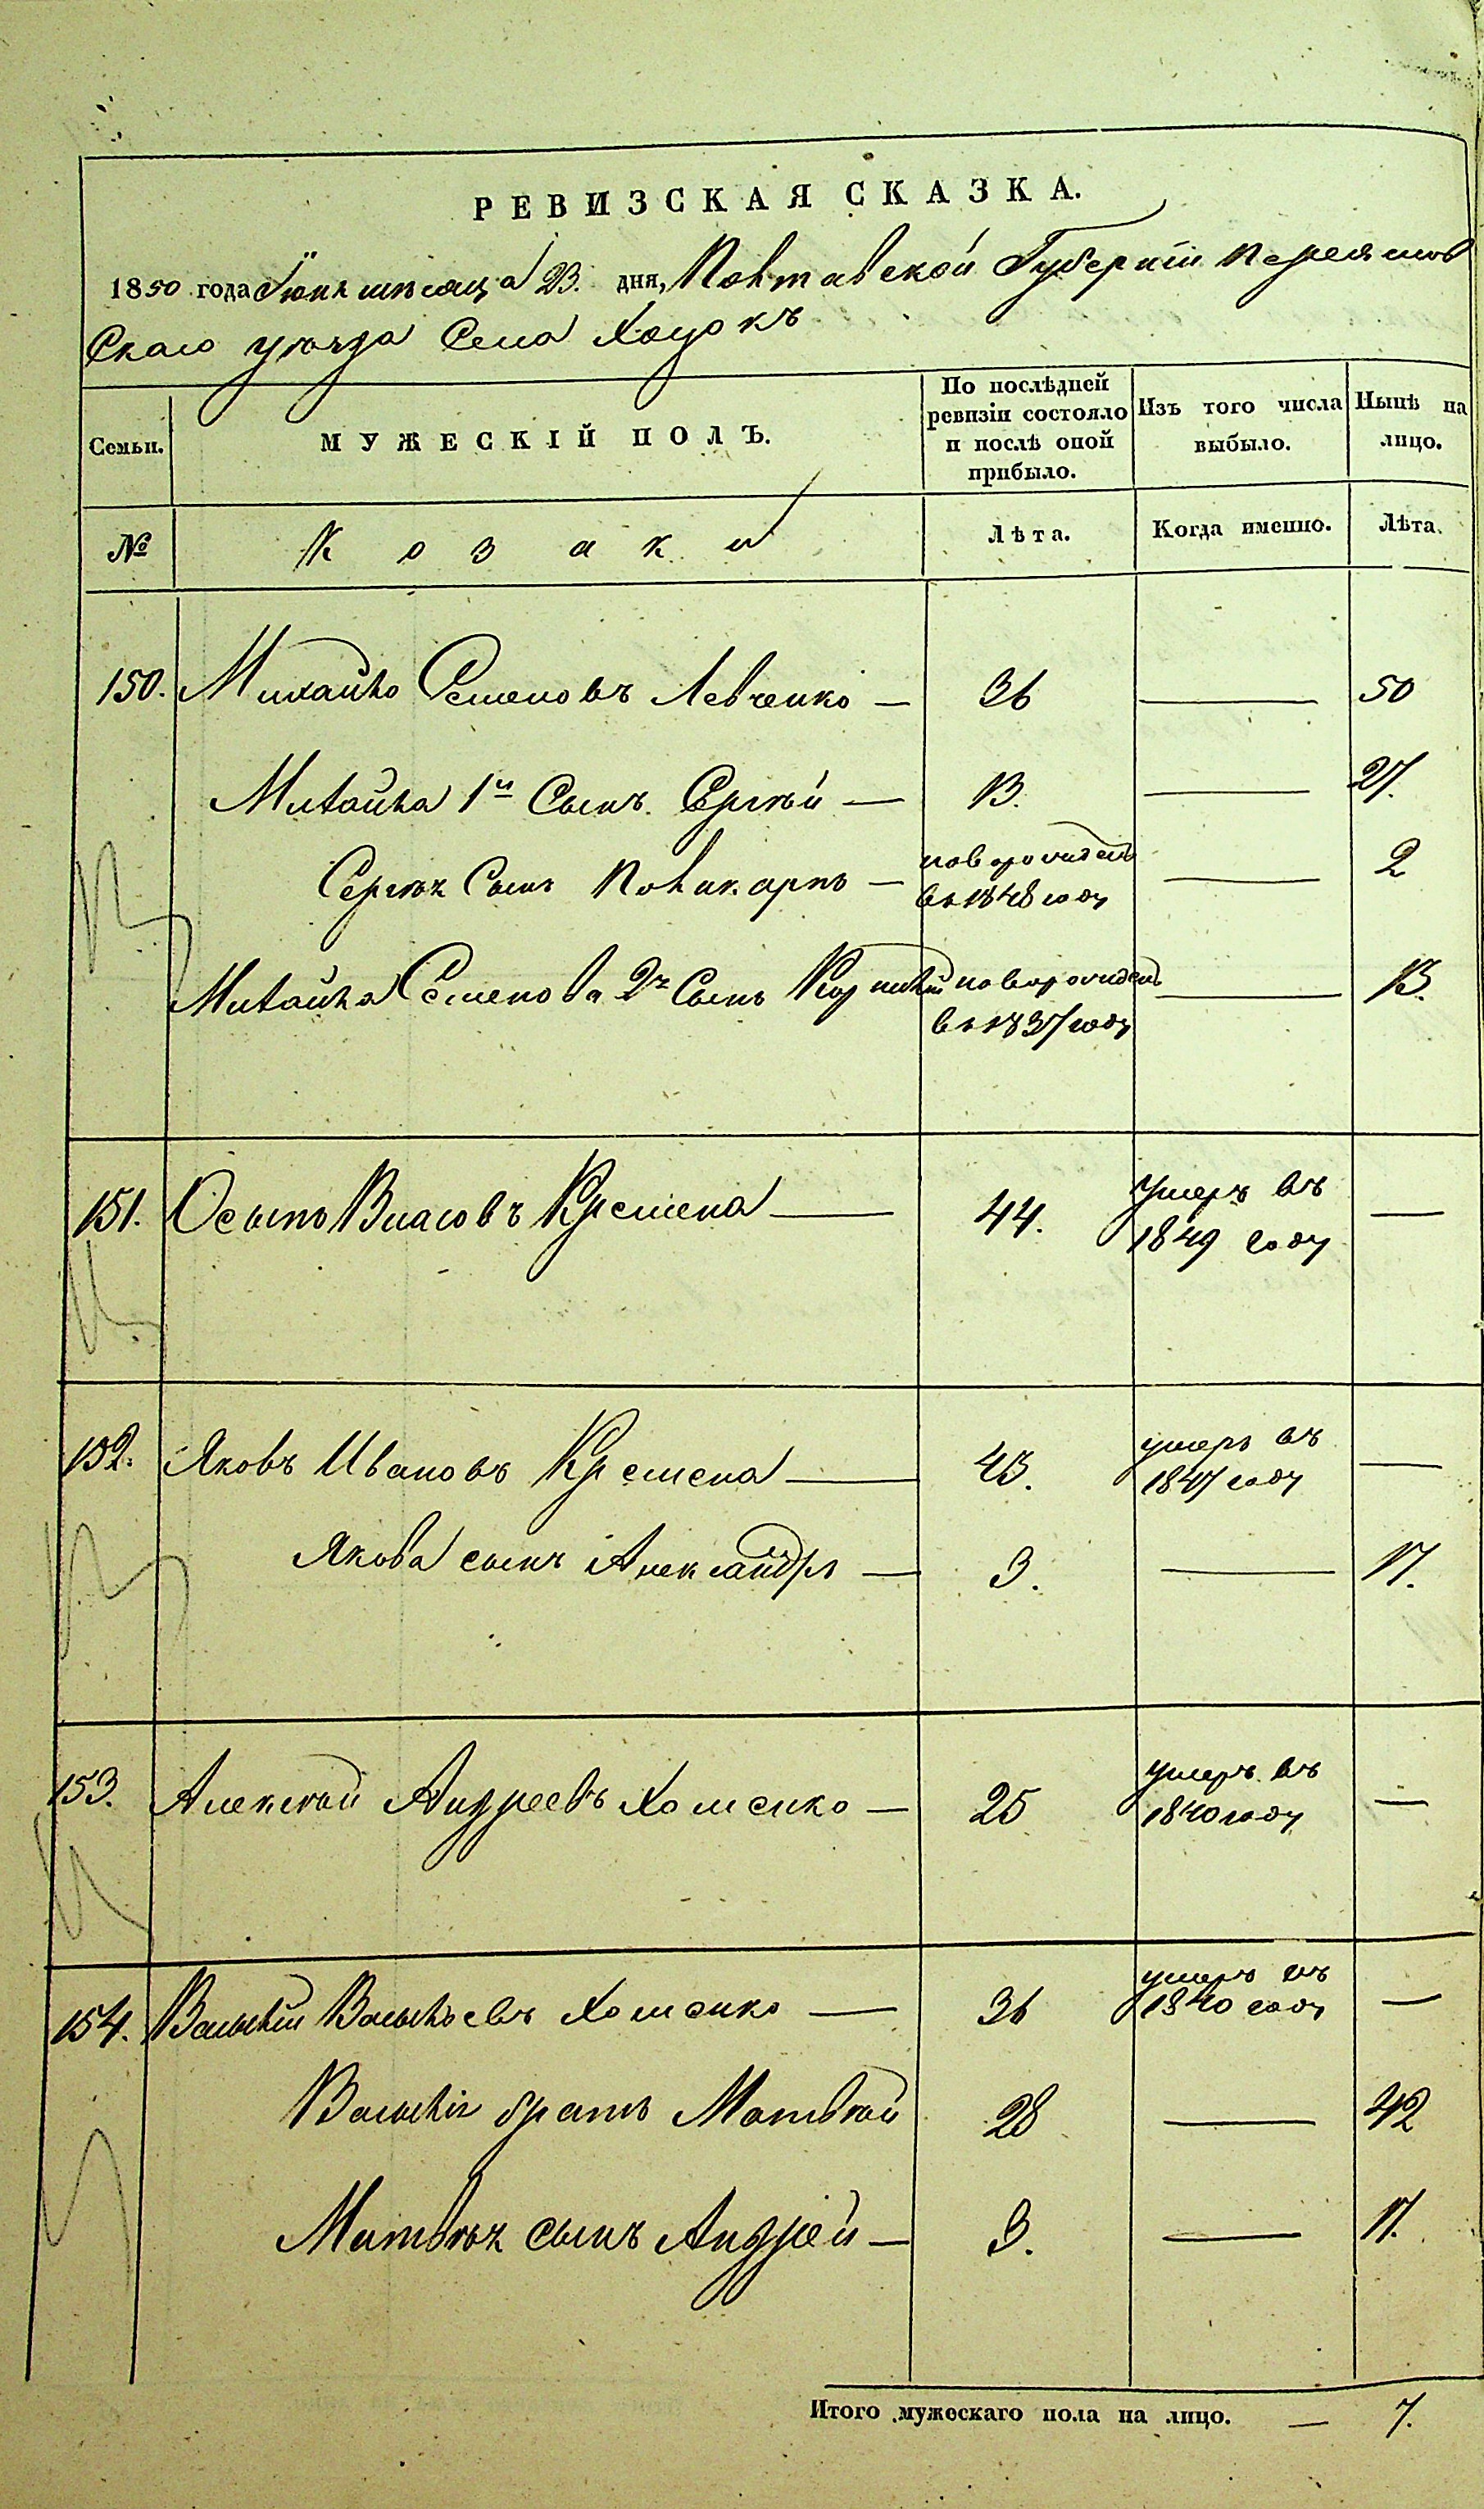 РЕВИЗСКАЯ СКАЗКА.
1850 года Іюня мѣсяца 23. дня, Полтавской Губерніи Переяслов
Скаго уѣзда Села Хоцокъ
Семьи.
МУЖЕСКІЙ ПОЛЪ.
По послѣдней ревизіи состояло и послѣ оной прибыло.
Изъ того числа выбыло.
Нынѣ на лицо.
№ Козаки Лѣта. Когда именно. Лѣта.
150. Михайло Семеновъ Левченко — 36 — 50
Михайла 1й Сынъ Сергѣй — 13. — 27.
Сергѣя Сынъ Поликарпъ — новорожденъ — 2
въ 1848 году
Михайла Семенова 2й Сынъ Корнилій новорожденъ — 13.
въ 1837 году
151. Осыпъ Власовъ Кремена — 44. Умеръ въ —
1849 году
152. Яковъ Ивановъ Кремена — 43. умеръ въ —
1847 году
Якова сынъ Александръ — 3. — 17.
153. Алексѣй Андреевъ Хоменко — 25 умеръ въ —
1840 году
154. Василій Васильевъ Хоменко — 36 умеръ въ —
1840 году
Василія братъ Матвѣй 28 — 42
Матвѣя сынъ Андрей — 3. — 17.
Итого мужескаго пола на лицо. — 7.